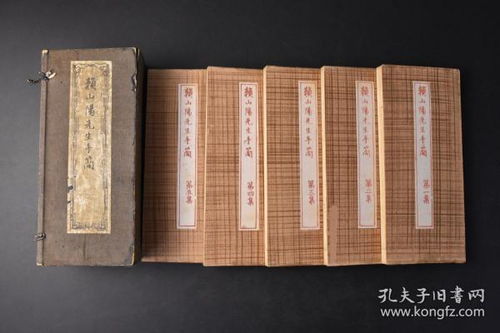 頼山陽先生手簡
頼山陽先生手簡
第五集
頼山陽先生手簡
第四集
頼山陽先生手簡
第三集
頼山陽先生手簡
第二集
頼山陽先生手簡
第一集
孔夫子旧书网
www.kongfz.com